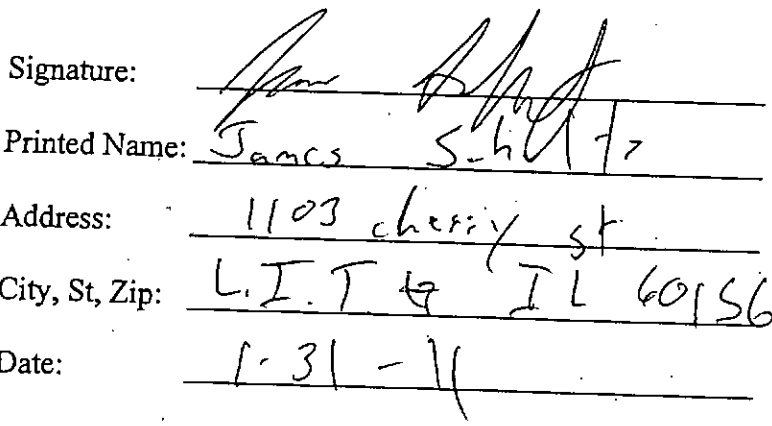 Signature:
Printed Name: James
Address: 1103 cherry st
City, St, Zip: L.I.T.H IL 60156
Date: 1-31-11